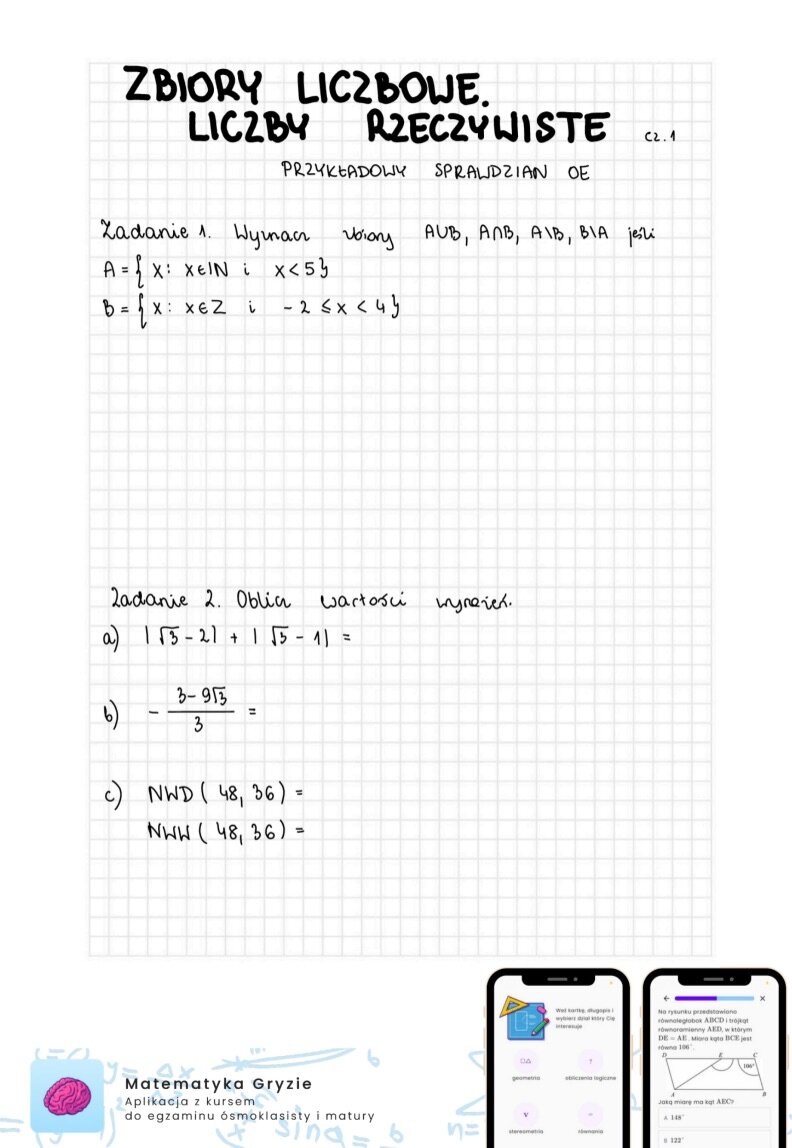 ZBIORY LICZBOWE.
LICZBY RZECZYWISTE cz.1
PRZYKŁADOWY SPRAWDZIAN OE
Zadanie 1. Wyznacz zbiory A∪B, A∩B, A\B, B\A jeśli
A = { x : x∈ℕ i x < 5}
B = { x : x∈Z i -2 ≤ x < 4}
Zadanie 2. Oblicz wartości wyrażeń.
a) |√3 - 2| + |√3 - 1| =
b) - \frac{3-9√3}{3} =
c) NWD ( 48, 36) =
NWW ( 48, 36) =
Weź kartkę, długopis i
wybierz dział który Cię
interesuje
geometria
obliczenia logiczne
stereometria
równania
Na rysunku przedstawiono
równoległobok ABCD i trójkąt
równoramienny AED, w którym
DE = AE. Miara kąta BCE jest
równa 106°.
D E C
106°
A B
Jaką miarę ma kąt AEC?
A 148°
B 122°
Matematyka Gryzie
Aplikacja z kursem
do egzaminu ósmoklasisty i matury